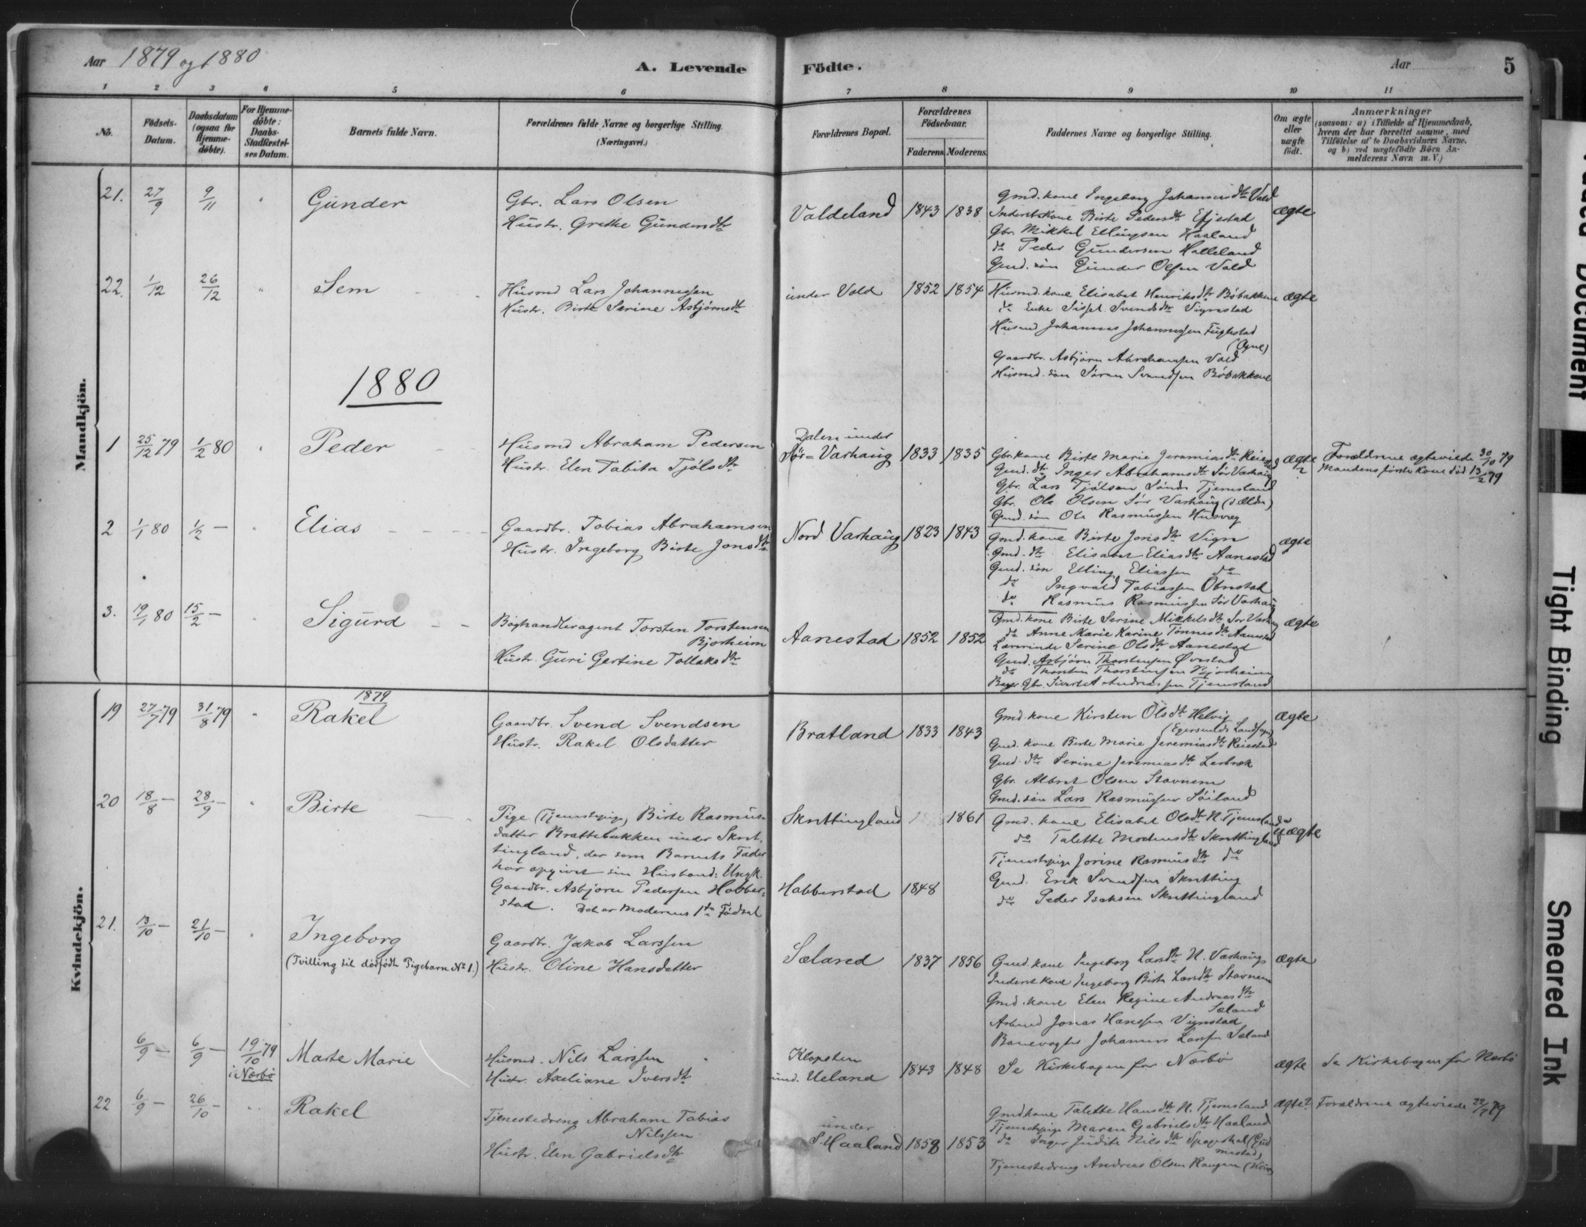 Aar 1879 og 1880
A. Levende Födte.
Aar 5
1 2 3 4 5 6 7 8 9 10 11
No.
Födsels-Datum.
Daabsdatum (ogsaa for Hjemme-döbte).
For Hjemme-döbte: Daabs-Stadfæstel-ses Datum.
Barnets fulde Navn.
Forældrenes fulde Navne og borgerlige Stilling. (Næringsvei.)
Forældrenes Bopæl.
Forældrenes Födselsaar.
Faderens. Moderens.
Faddernes Navne og borgerlige Stilling.
Om ægte eller uægte födt.
Anmærkninger
(saasom: a) i Tilfælde af Hjemmedaab, hvem der har forrettet samme, med Tilföielse af to Daabsvidners Navne, og b) ved uægtefödte Börn An-melderens Navn m. V.)
Mandkjön.
21. 27/9 9/11 Gunder
Gbr. Lars Olsen
Hustr. Grethe Gundersdtr
Valdeland 1843 1838
Gmd. kone Ingeborg Johannesdtr Vold
Inderstkone Birte Pedersdtr Efjestad
Gbr. Mikkel Ellingsen Haaland
do Peder Gundersen Holleland
Gmd. søn Gunder Olsen Vold
ægte
22. 1/12 26/12 Sem
Husmd Lars Johannessen
Hustr. Birte Serine Asbjørnsdtr
under Vold 1852 1854
Husmd. kone Elisabet Henriksdtr Bøbakkene
do Enke Sissel Svendsdtr Vigrestad
Husmd Johannes Johannessen Fuglestad
(Ogne)
Gaardbr. Asbjørn Abrahamsen Vold
Husmd. søn Søren Svendsen Bøbakkene
ægte
1880
1 25/12 79 1/2 80 Peder
Husmd Abraham Pedersen
Hustr. Elen Tabita Tjølsdtr
Dalen under
Sør-Varhaug 1833 1835
Gbr kone Birte Marie Jeremiasdtr Reiestad
Gmd. dtr Inger Abrahamsdtr Sør Varhaug
Gbr. Lars Tjølsen Søndr Tjemsland
Gbr. Ole Olsen Sør Varhaug (ældr)
Gmd. søn Ole Rasmussen Husveg
ægte
Forældrene ægteviede 30/10 79
Mandens første Kone död 13/2 79
2 1/1 80 1/2 — Elias
Gaardbr. Tobias Abrahamsen
Hustr. Ingeborg Birte Jonsdtr
Nord Varhaug 1823 1843
Gmd. kone Birte Jonsdtr Vign
Gmd. dtr Elisabet Eliasdtr Aanestad
Gmd. søn Elling Eliassen do
do Ingvald Tobiassen Obrestad
do Rasmus Rasmussen Sör Varhaug
ægte
3. 19/1 80 15/2 — Sigurd
Boghandleragent Torsten Torstensen
Bjorheim
Hustr. Guri Gertine Tollaksdtr
Aanestad 1852 1852
Gmd. kone Birte Serine Mikkelsdtr Sør Varhaug
do Anne Marie Karine Tønnesdtr Aanestad
Lærerinde Serine Olsdtr Aanestad
Gmd. Asbjörn Thorstensen Överstad
do Thorsten Thorstensen Bjorheim
Tjemsland
ægte
Kvindekjön.
1879
19 27/7 79 31/8 79 Rakel
Gaardbr. Svend Svendsen
Hustr. Rakel Olsdatter
Bratland 1833 1843
Gmd. kone Kirsten Olsdtr Helvig
(Egersunds Landsogn)
Gmd. kone Birte Marie Jeremiasdtr Reiestad
Gmd. dtr Serine Jeremiasdtr Lerbrek
Gbr. Albret Olsen Stavnem
Gmd. søn Lars Rasmussen Söiland
ægte
20 18/8 — 28/9 — Birte
Pige (Tjenestepige) Birte Rasmus-
datter Brattebakken under Skret-
tingland, der som Barnets Fader
har opgivet sin Husbond: Ungk.
Gaardbr. Asbjørn Pedersen Hobber-
stad. Det er Moderens 1ste Födsel
Skrettingland 1861
Hobberstad 1848
Gmd. kone Elisabet Olsdtr N. Tjemsland
do Talette Skrettingland
Tjenestepige Jorine Rasmusdtr do
Gmd. Erik Svendsen Skretting
do Peder Isaksen Skrettingland
Uægte
21. 13/10 — 21/10 — Ingeborg
(Tvilling til dødfødt Pigebarn No 1.)
Gaardbr. Jakob Larssen
Hustr. Oline Hansdatter
Sæland 1837 1856
Gmd. kone Ingeborg Larsdtr N. Varhaug
Inderst kone Ingeborg Birte Larsdtr Stavnem
Gmd. kone Elen Regine Andreasdtr
Sæland
Arbmd Jonas Hanssen Vigrestad
Banevogter Johannes Larsen Sæland
ægte
6/9 — 6/9 — 19/10 79 i Nærbö Marte Marie
Husmd. Nils Larssen
Hustr. Axeliane Iversdtr
Klopsten
und. Ueland 1843 1848
Se Kirkebogen for Nærbö
ægte
Se Kirkebogen for Nærbö
22 6/9 — 26/10 — Rakel
Tjenestedreng Abraham Tobias
Nilssen
Hustr. Elen Gabrielsdtr
under
S. Haaland 1858 1853
Gmd kone Talette Hansdtr N. Tjemsland
Tjenestepige Maren Gabrielsdtr Haaland
do Inger Judith Nilsdtr
Tjenestedreng Andreas Olsen
ægte
Forældrene ægteviede 22/7 79
Document
Tight Binding
Smeared Ink